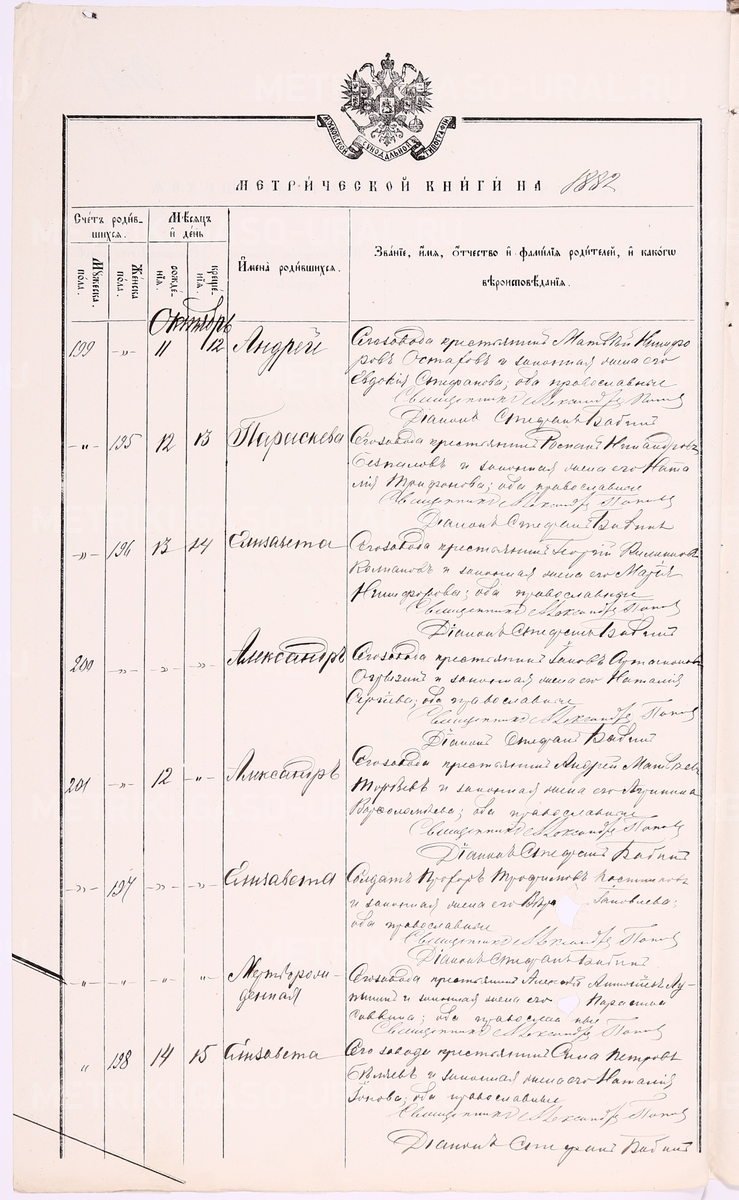 МОСКОВСКОЙ СѴНОДАЛЬНОЙ ТИПОГРАФІИ
МЕТРИ́ЧЕСКОЙ КНИ́ГИ НА 1882
Сче́тъ роди́в-
шихся.
Му́жеска по́ла.
Же́нска по́ла.
Мѣ́сяцъ
и҆ де́нь
рожде́-
нїѧ.
креще́-
нїѧ.
И҆мена̀ роди́вшихся.
Зва́нїе, и҆́мѧ, ѻ҆́тчество и҆ фами́лїѧ роди́телей, и҆ како́гѡ
вѣроисповѣ́данїѧ.
Октябрь
199 „ 11 12 Андрей
Сего завода крестьянинъ Матвѣй Никифо
ровъ Остафовъ и законная жена его
Евдокія Стефанова; оба православные
Священникъ Александръ Поповъ
Діаконъ Стефанъ Бабинъ
„ 195 12 13 Параскева
Сего завода крестьянинъ Никандровъ
и законная жена его Ната
лія Трифонова; оба православные
Священникъ Александръ Поповъ
Діаконъ Стефанъ Бабинъ
„ 196 13 14 Елизавета
Сего завода крестьянинъ Георгій
и законная жена его Марія
Никифорова; оба православные
Священникъ Александръ Поповъ
Діаконъ Стефанъ Бабинъ
200 „ „ „ Александръ
Сего завода крестьянинъ Іаковъ
и законная жена его Наталія
Сергіева; оба православные
Священникъ Александръ Поповъ
Діаконъ Стефанъ Бабинъ
201 „ 12 „ Александръ
Сего завода крестьянинъ Андрей Матвѣевъ
и законная жена его Агрипина
Варфоломѣева; оба православные
Священникъ Александръ Поповъ
Діаконъ Стефанъ Бабинъ
„ 197 „ „ Елизавета
Солдатъ Трофимовъ
и законная жена его Вѣра Іаковлева;
оба православные
Священникъ Александръ Поповъ
Діаконъ Стефанъ Бабинъ
„ „ „ „ Мертворож-
денная
Сего завода крестьянинъ Алексѣй
и законная жена его
Саввина; оба православные
Священникъ Александръ Поповъ
„ 198 14 15 Елизавета
Сего завода крестьянинъ Сила Петровъ
Бѣляевъ и законная жена его Наталія
Іонова; оба православные
Священникъ Александръ Поповъ
Діаконъ Стефанъ Бабинъ